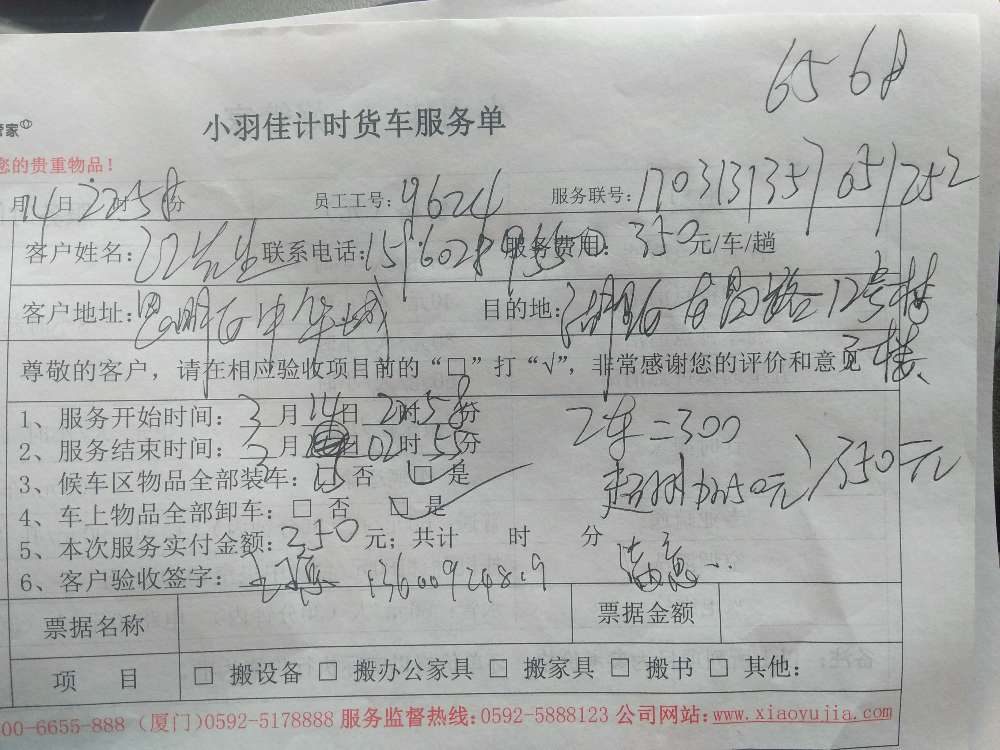 6568
管家
小羽佳计时货车服务单
您的贵重物品！
月14日22时58分 员工工号：9624 服务联号：1703131357651252
客户姓名：江先生 联系电话： 服务费用：350元/车/趟
客户地址：思明区中华城 目的地：湖里区 路12号楼
尊敬的客户，请在相应验收项目前的“□”打“√”，非常感谢您的评价和意见 楼
1、服务开始时间：3月14日22时58分
2车=300
2、服务结束时间：3月15日02时55分
超时加50元 350元
3、候车区物品全部装车：□ 否 □ 是
4、车上物品全部卸车：□ 否 □ 是
5、本次服务实付金额：350元；共计 时 分
6、客户验收签字： 13600924819 满意
票据名称 票据金额
项 目 □ 搬设备 □ 搬办公家具 □ 搬家具 □ 搬书 □ 其他：
00-6655-888（厦门）0592-5178888 服务监督热线：0592-5888123 公司网站：www.xiaoyujia.com